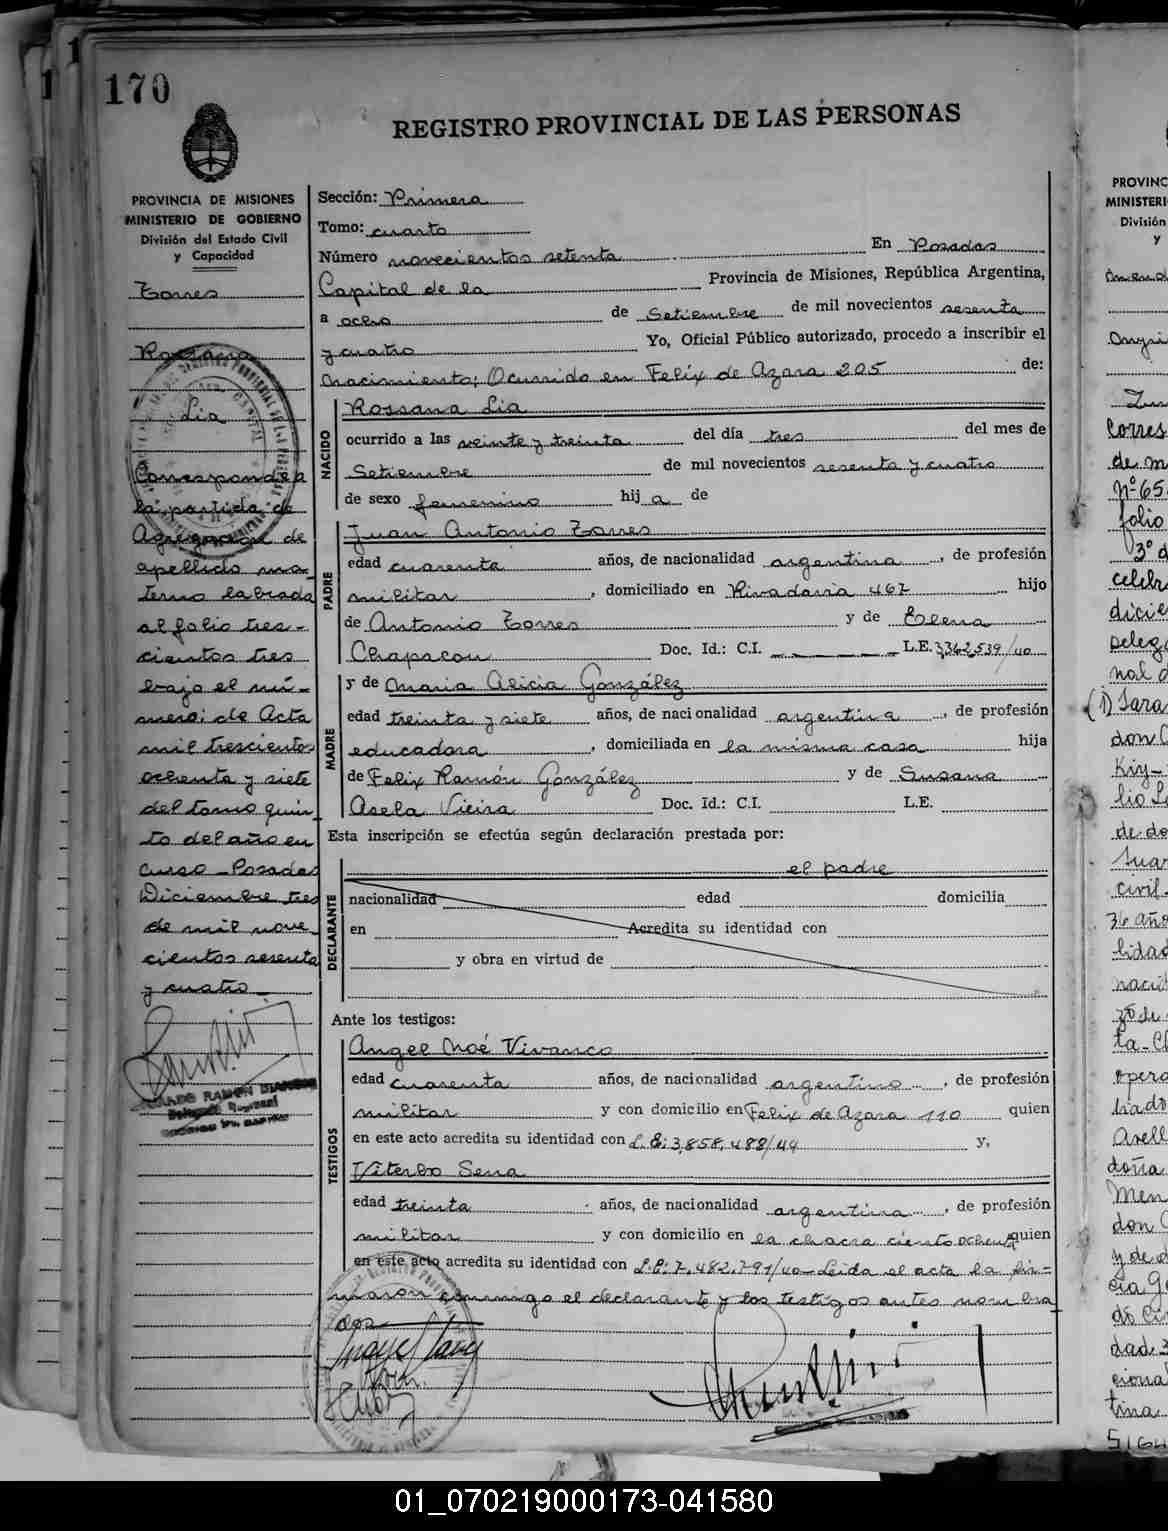 170
REGISTRO PROVINCIAL DE LAS PERSONAS
PROVINCIA DE MISIONES
MINISTERIO DE GOBIERNO
División del Estado Civil
y Capacidad
Torres
Rossana
Lia
Corresponde a
la partida de
Agregacion de
apellido ma-
terno labrada
al folio tres-
cientos tres
bajo el nú-
mero: de Acta
mil trescientos
ochenta y siete
del tomo quin-
to del año en
curso - Posadas
Diciembre tres
de mil nove-
cientos sesenta
y cuatro -
Sección: Primera
Tomo: cuarto
Número novecientos setenta En Posadas
Capital de la Provincia de Misiones, República Argentina,
a ocho de Setiembre de mil novecientos sesenta
y cuatro Yo, Oficial Público autorizado, procedo a inscribir el
nacimiento; Ocurrido en Felix de Azara 205 de:
NACIDO
Rossana Lia
ocurrido a las veinte y treinta del día tres del mes de
Setiembre de mil novecientos sesenta y cuatro
de sexo femenino hij a de
PADRE
Juan Antonio Torres
edad cuarenta años, de nacionalidad argentina, de profesión
militar, domiciliado en Rivadavia 467 hijo
de Antonio Torres y de Elena
Chapacou Doc. Id.: C.I. L.E. 3,362,539/40
MADRE
y de Maria Alicia González
edad treinta y siete años, de nacionalidad argentina, de profesión
educadora, domiciliada en la misma casa hija
de Felix Ramón González y de Susana
Asela Vieira Doc. Id.: C.I. L.E.
Esta inscripción se efectúa según declaración prestada por:
DECLARANTE
el padre
nacionalidad edad domicilia
en Acredita su identidad con
y obra en virtud de
Ante los testigos:
TESTIGOS
Angel Noé Vivanco
edad cuarenta años, de nacionalidad argentino, de profesión
militar y con domicilio en Felix de Azara 110 quien
en este acto acredita su identidad con L.E: 3,858,488/44 y,
Viterbo Sena
edad treinta años, de nacionalidad argentina, de profesión
militar y con domicilio en la chacra ciento ochenta quien
en este acto acredita su identidad con L.E: 7,482,791/40 - Leida el acta la fir-
maron conmigo el declarante y los testigos antes nombra-
dos
PROVINC
MINISTERI
División
y
corres
de m
Nº 65
folio
3º d
celebr
dicie
Deleg
nal d
don
civil-
36 año
lidad
opera
doña
don
y de d
dad 3
tina
01_070219000173-041580